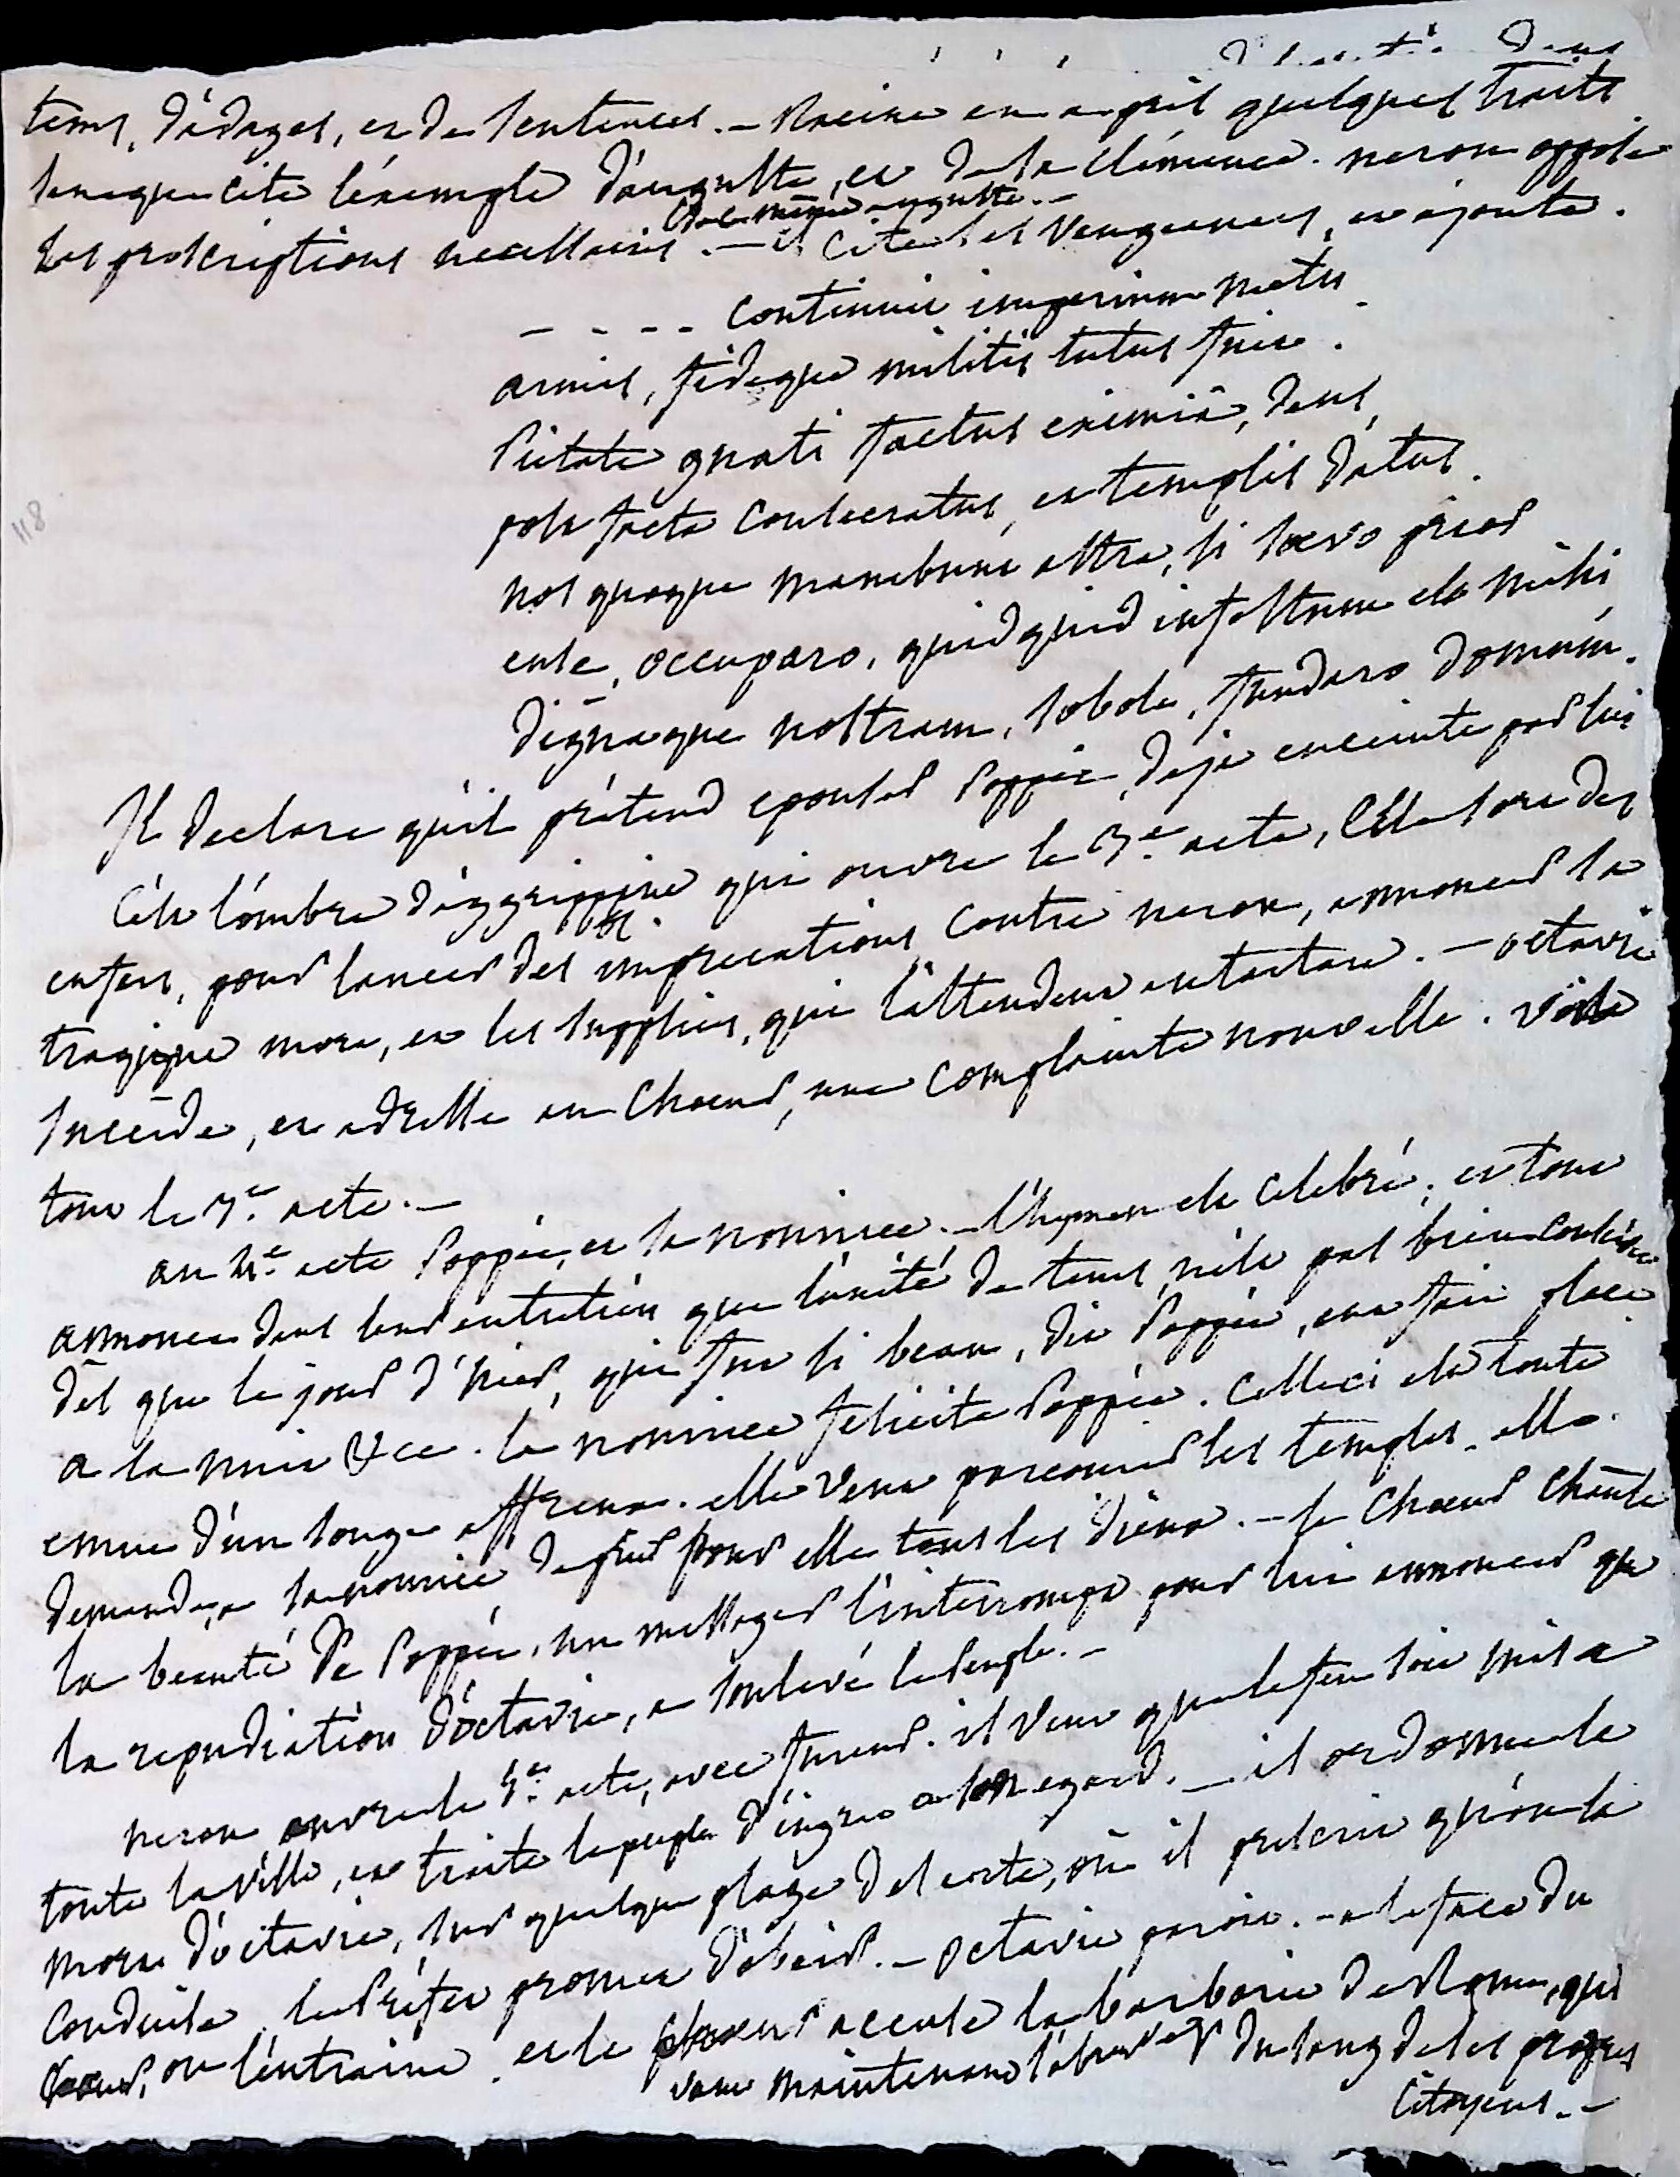 tems, d'adages, et de sentences. – Racine en a pris quelques traits
seneque cite l'exemple d'auguste, et de sa clémence. neron oppose
de ce même auguste. –
les proscriptions necessaires. – il cite ses vengeances, et ajoute.
– – – – continuit imperium metus
armis, fideque militis tutus fuit.
Pietate gnati factus eximiâ, deus,
post fata consecratus, et templis datus.
nos quoque manebunt astra, si saevo prior
ense, occuparo, quidquid infestum est mihi
dignaque nostram, sobole, fundaro domum.
Il declare qu'il prétend epouser Poppée, deja enceinte par lui
C'est l'ombre d'aggrippine qui ouvre le 3e. acte, elle sort des
enfers, pour lancer des imprecations contre neron, annoncer sa
tragique mort, et les supplices, qui l'attendent au tartare. – octavie
succède, et adresse au Choeur, une complainte nouvelle. voila
tout le 3e. acte. –
au 4e. acte Poppée, et sa nourrice. – l'hymen est celebré, et tout
annonce dans leur entretien que l'unité de tems, n'est pas bien conservée
dès que le jour d'hier, qui fut si beau, dit Poppée, eut fait place
a la nuit &ce. la nourrice felicite Poppée. Celleci est toute
emue d'un songe affreux. elle veut parcourir les temples. elle
demande, a sa nourrice, de prier pour elle tous les dieux. – le Choeur chante
la beauté de Poppée, un messager l'interrompt pour lui annoncer que
la repudiation d'octavie, a soulevé le peuple. –
neron ouvre le 5e. acte, avec fureur. il veut que le feu soit mis a
toute la ville, et traite le peuple d'ingrat a son egard. – il ordonne la
mort d'octavie, sur quelque plage deserte, où il prescrit qu'on la
conduise. le Préfet promet d'obeir. – octavie paroit. – a la face du
Choeur, on l'entraine. et le choeur accuse la barbarie de Rome, qui
veut maintenant s'abreuver du sang de ses propres
Citoyens. –
118